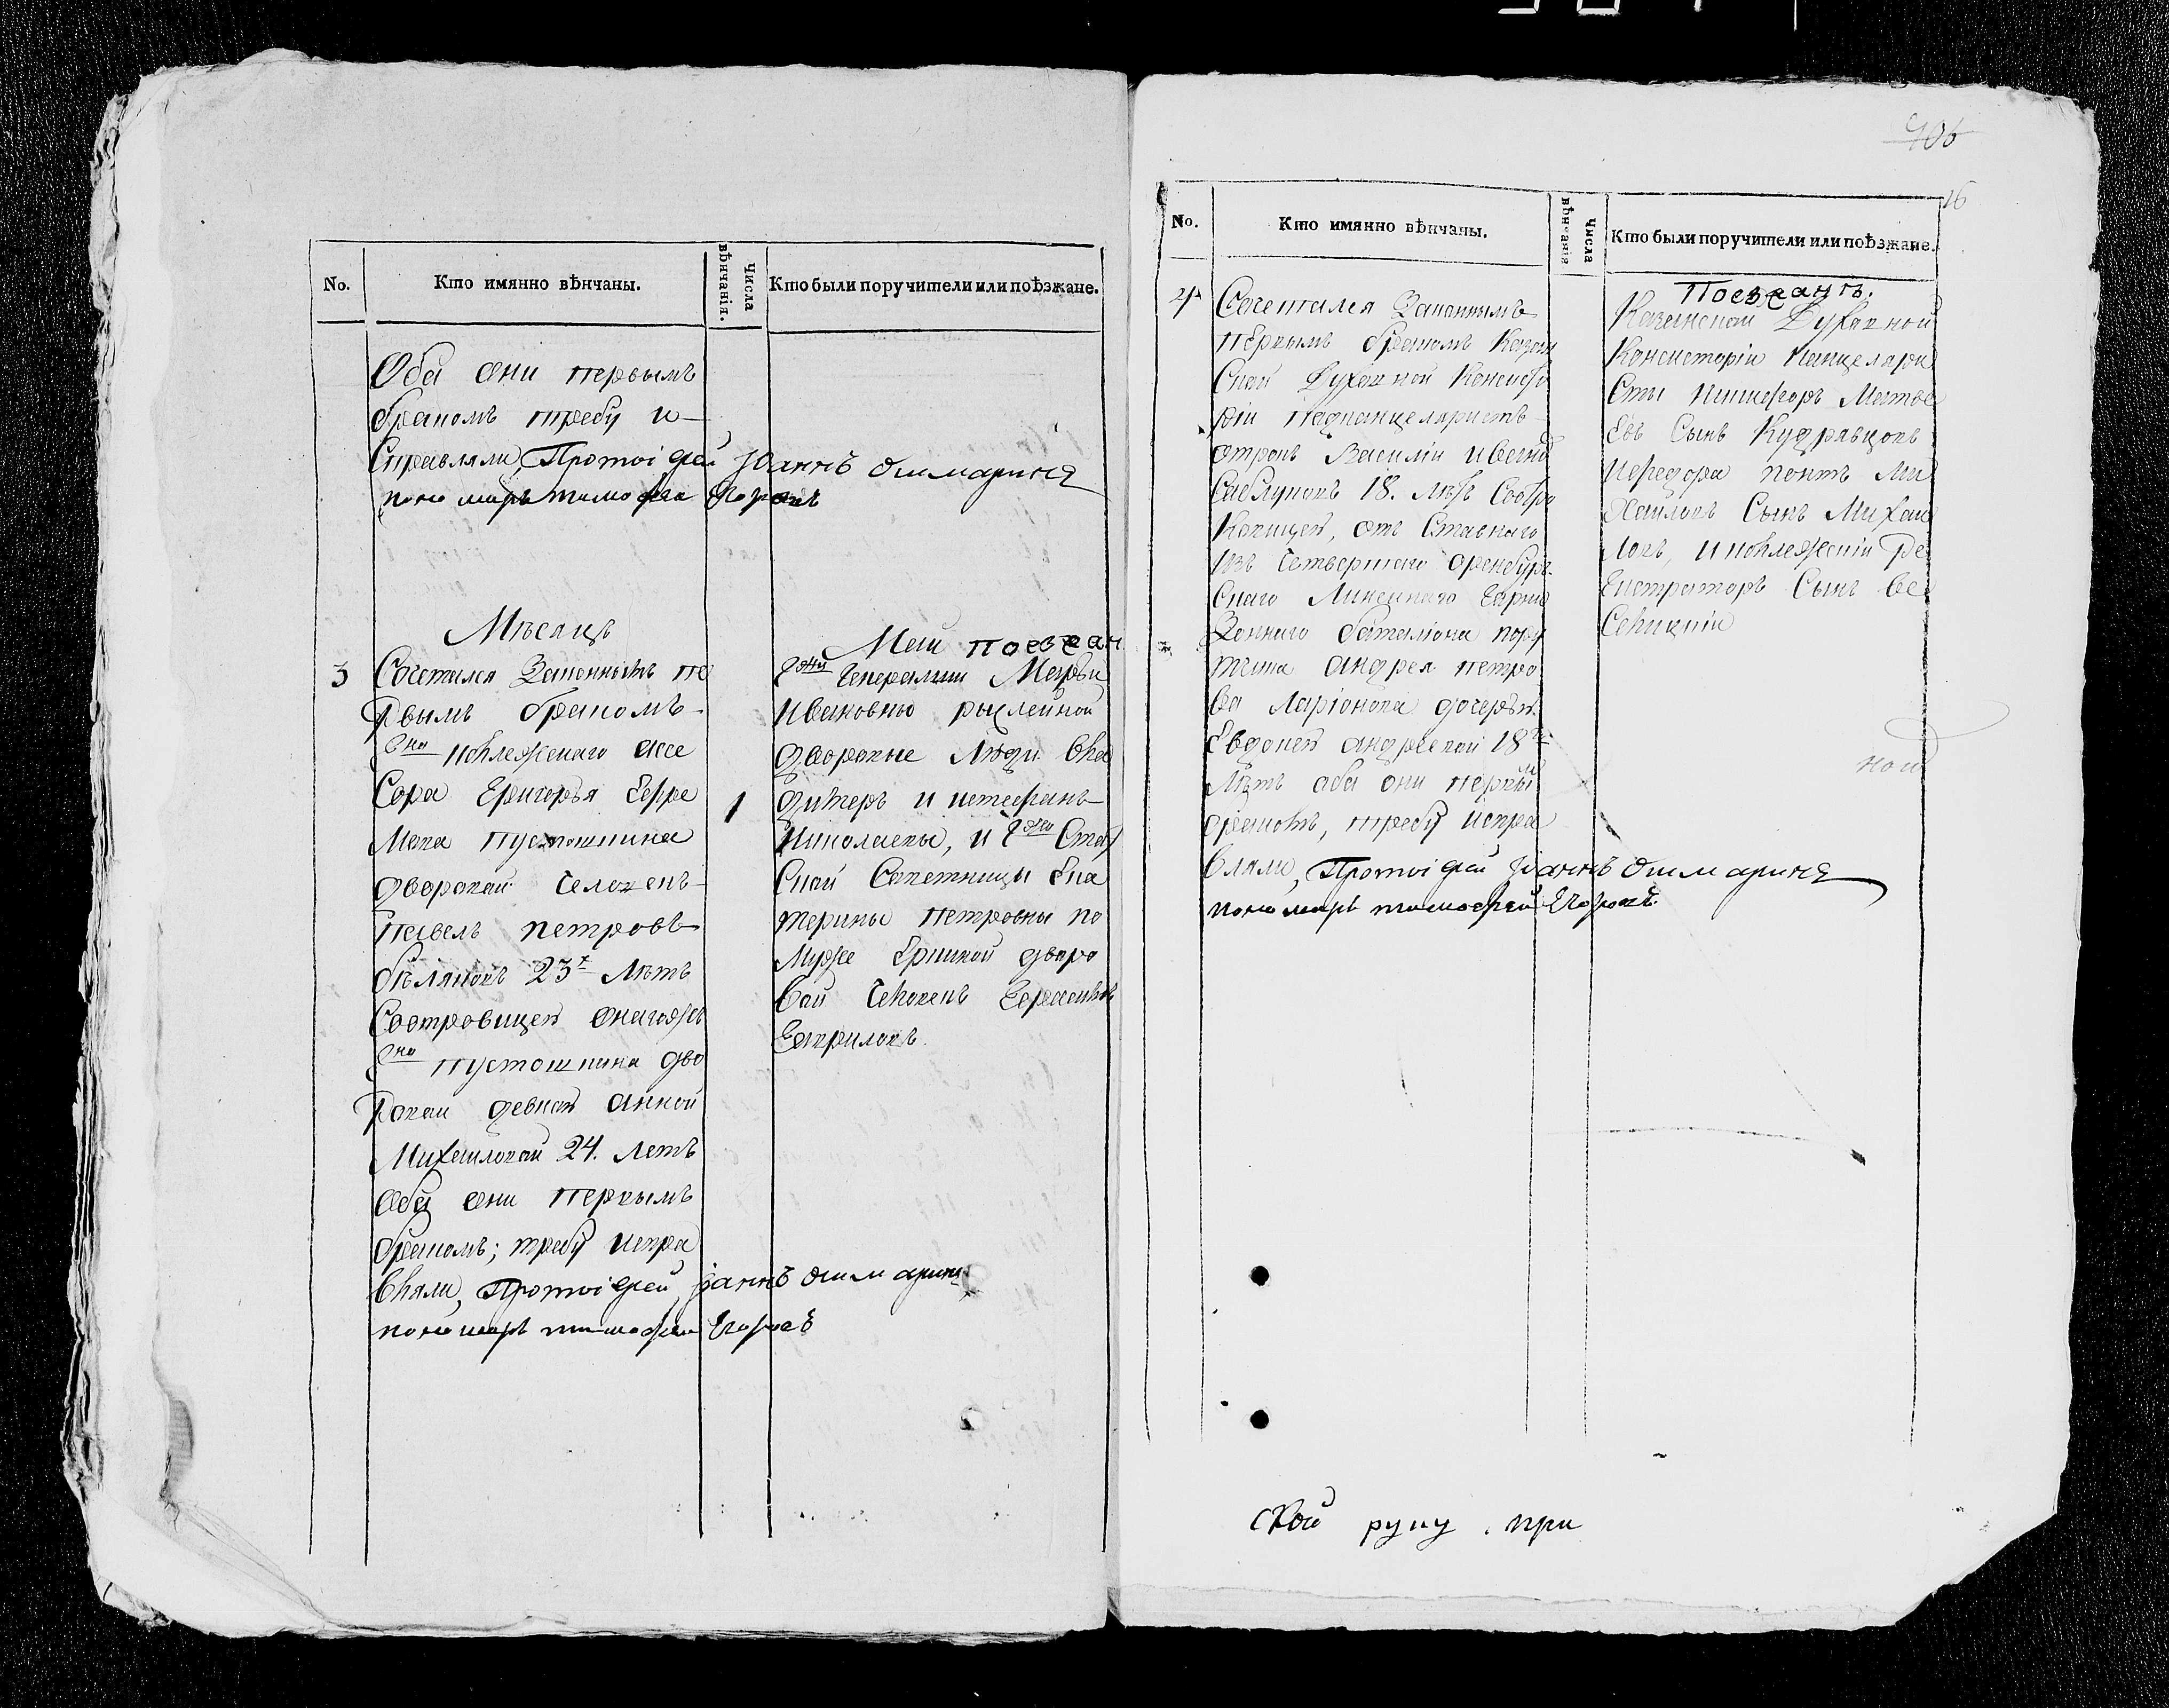 No. Кто имянно вѣнчаны. Числа вѣнчанія. Кто были поручители или поѣзжане.
Оба они первымъ
бракомъ требу и
справляли, Протоіерей Іоаннъ
пономарь тимофеи Егоровъ
Мѣсяцъ
3 Сочетался Законнымъ пе
рвымъ бракомъ
гна коллежскаго ассе
сора Григорья Ефре
мова Пустошкина
дворовой человекъ
павелъ петровъ
бѣляковъ 23х лѣтъ
Соотроковицей онагожъ
гна пустошкина дво
ровой девкой анной
Михайловой 24. летъ
оба они первымъ
бракомъ; требу испра
вляли, Протоіерей Іоаннъ
пономарь тимофеи Егоровъ
1
Маи поезжан
гжи Генералши Марьи
Ивановны рыхлейной
дворовые люди
и стефанъ
Николаевы, и гжи Стат
ской Советницы Ека
терины петровны по
муже дворо
вой человекъ Герасимъ
Гавриловъ.
406
16
No. Кто имянно вѣнчаны. Числа вѣнчанія Кто были поручители или поѣзжане.
4 Сочетался Законнымъ
первымъ бракомъ Казан
ской Духовной Консисто
ріи подканцеляристъ
отрокъ Василіи
18. лѣтъ Соотро
ковицей, отъ ставнаго
изъ четвертаго оренбург
скаго Линейнаго Гарни
зоннаго баталіона пору
тчика андрея петро
ва Ларіонова дочерью
Евдокіей андреевой 18ти
лѣтъ оба они первым
бракомъ, требу испра
вляли, Протоіерей Іоаннъ
пономарь тимофей Егоровъ.
Поезжанъ.
Казанской Духовной
Консисторіи Канцеляри
сты Никифоръ Матве
евъ Сынъ Кудрявцовъ
Михаи
хаиловъ Сынъ Михаи
ловъ, и коллежскіи Ре
гистраторъ Сынъ
ской руку при